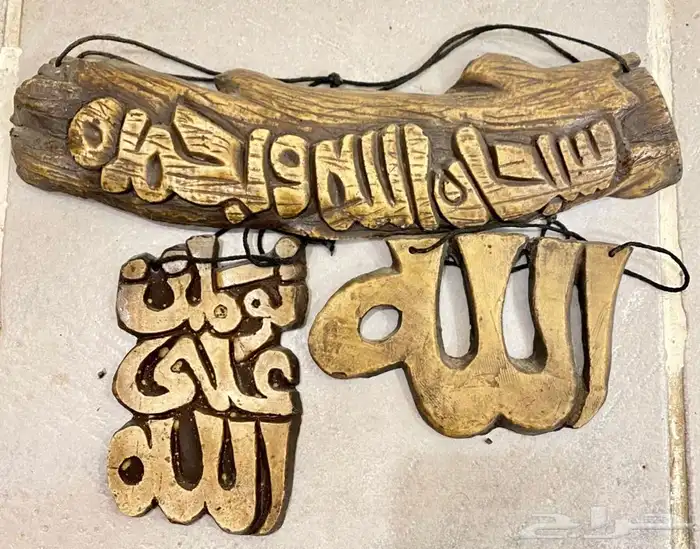 سبحان الله وبحمده
توكلت
على
الله
الله
حراج